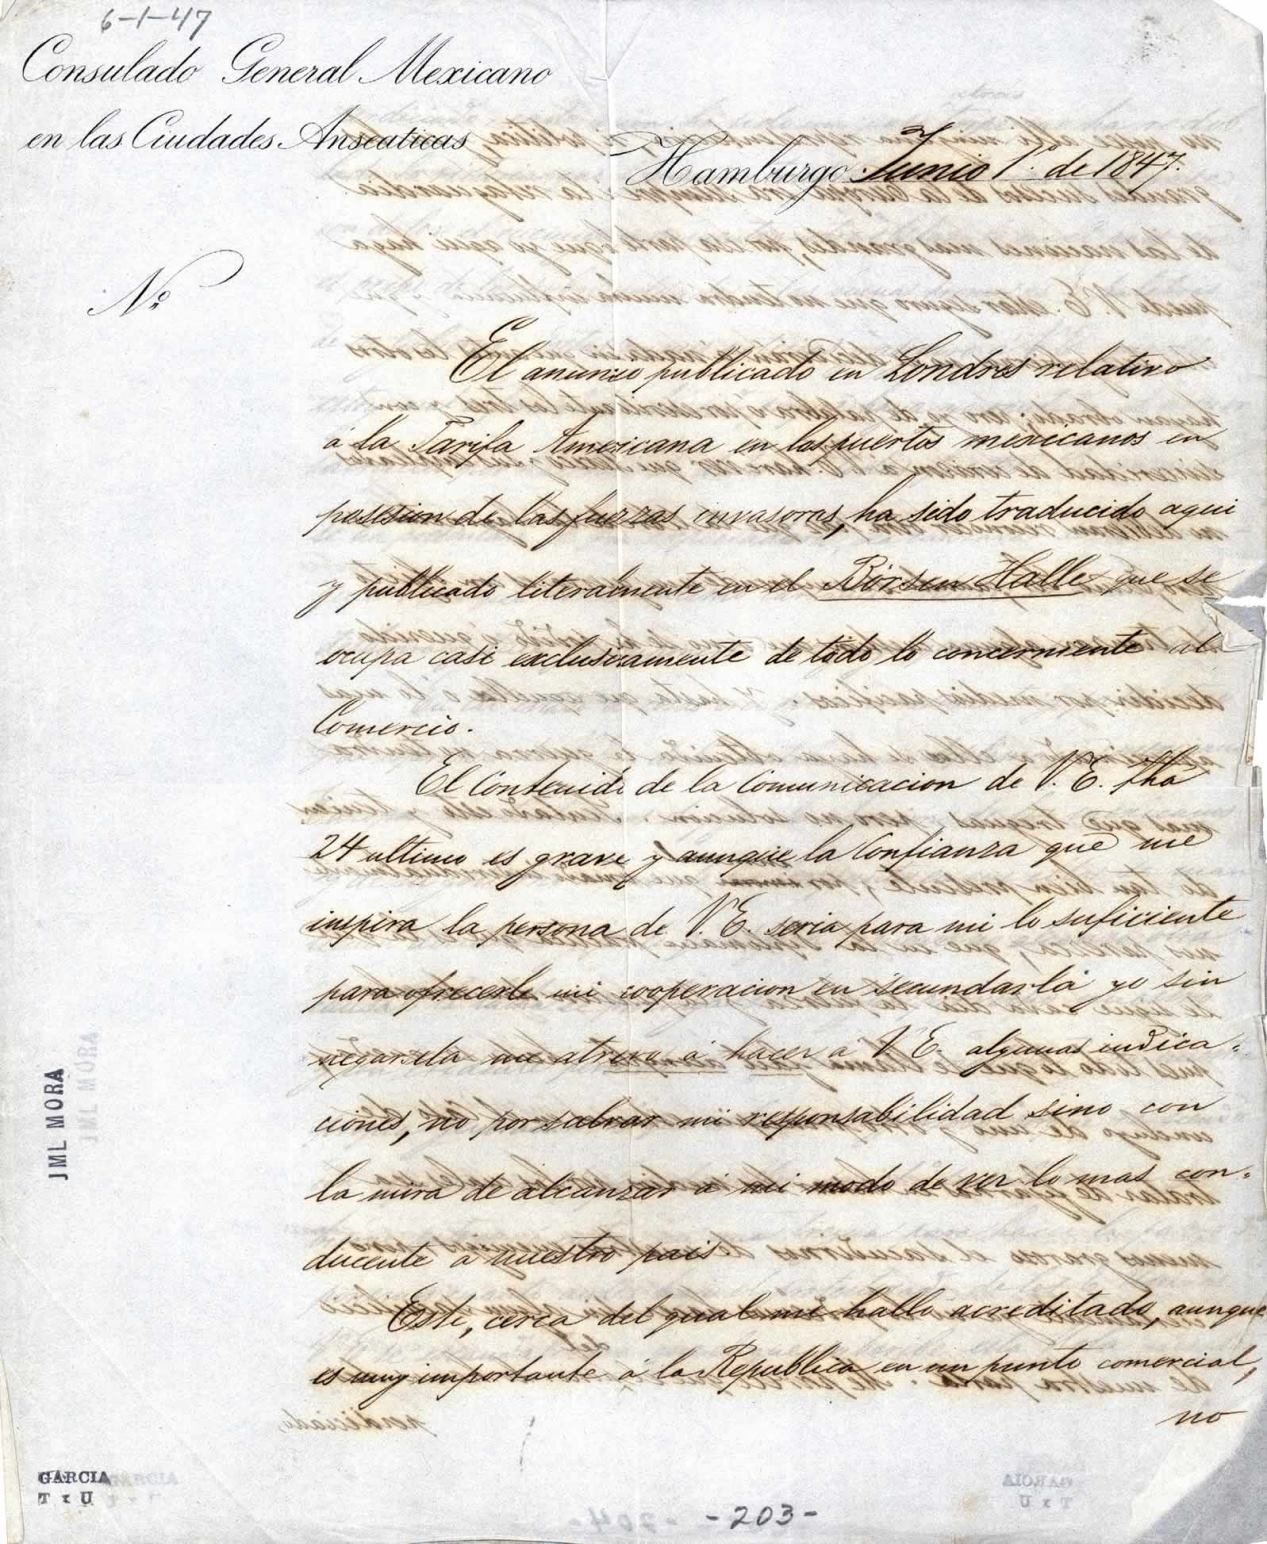 6-1-47
Consulado General Mexicano
en las Ciudades Anseaticas
Hamburgo Junio 1º de 1847.
Nº
El anunzio publicado en Londres relativo
á la Tarifa Americana en los puertos mexicanos en
posesion de las fuerzas invasoras, ha sido traducido aqui
y publicado literalmente en el Börsen Halle que se
ocupa casi exclusivamente de todo lo concerniente al
Comercio.
El Contenido de la Comunicacion de V. E. fha
24 ultimo es grave y aunque la Confianza que me
inspira la persona de V. E. seria para mi lo suficiente
para ofrecerle mi cooperacion en secundarla yo sin
negarsela me atrevo á hacer á V. E. algunas indica-
ciones, no por salvar mi responsabilidad sino con
la mira de alcanzar á mi modo de ver lo mas con-
ducente a nuestro pais
Este, cerca del qual me hallo acreditado, aunque
es muy importante á la Republica en un punto comercial,
no
JML MORA
JML MORA
GARCIA
T x U
-203-